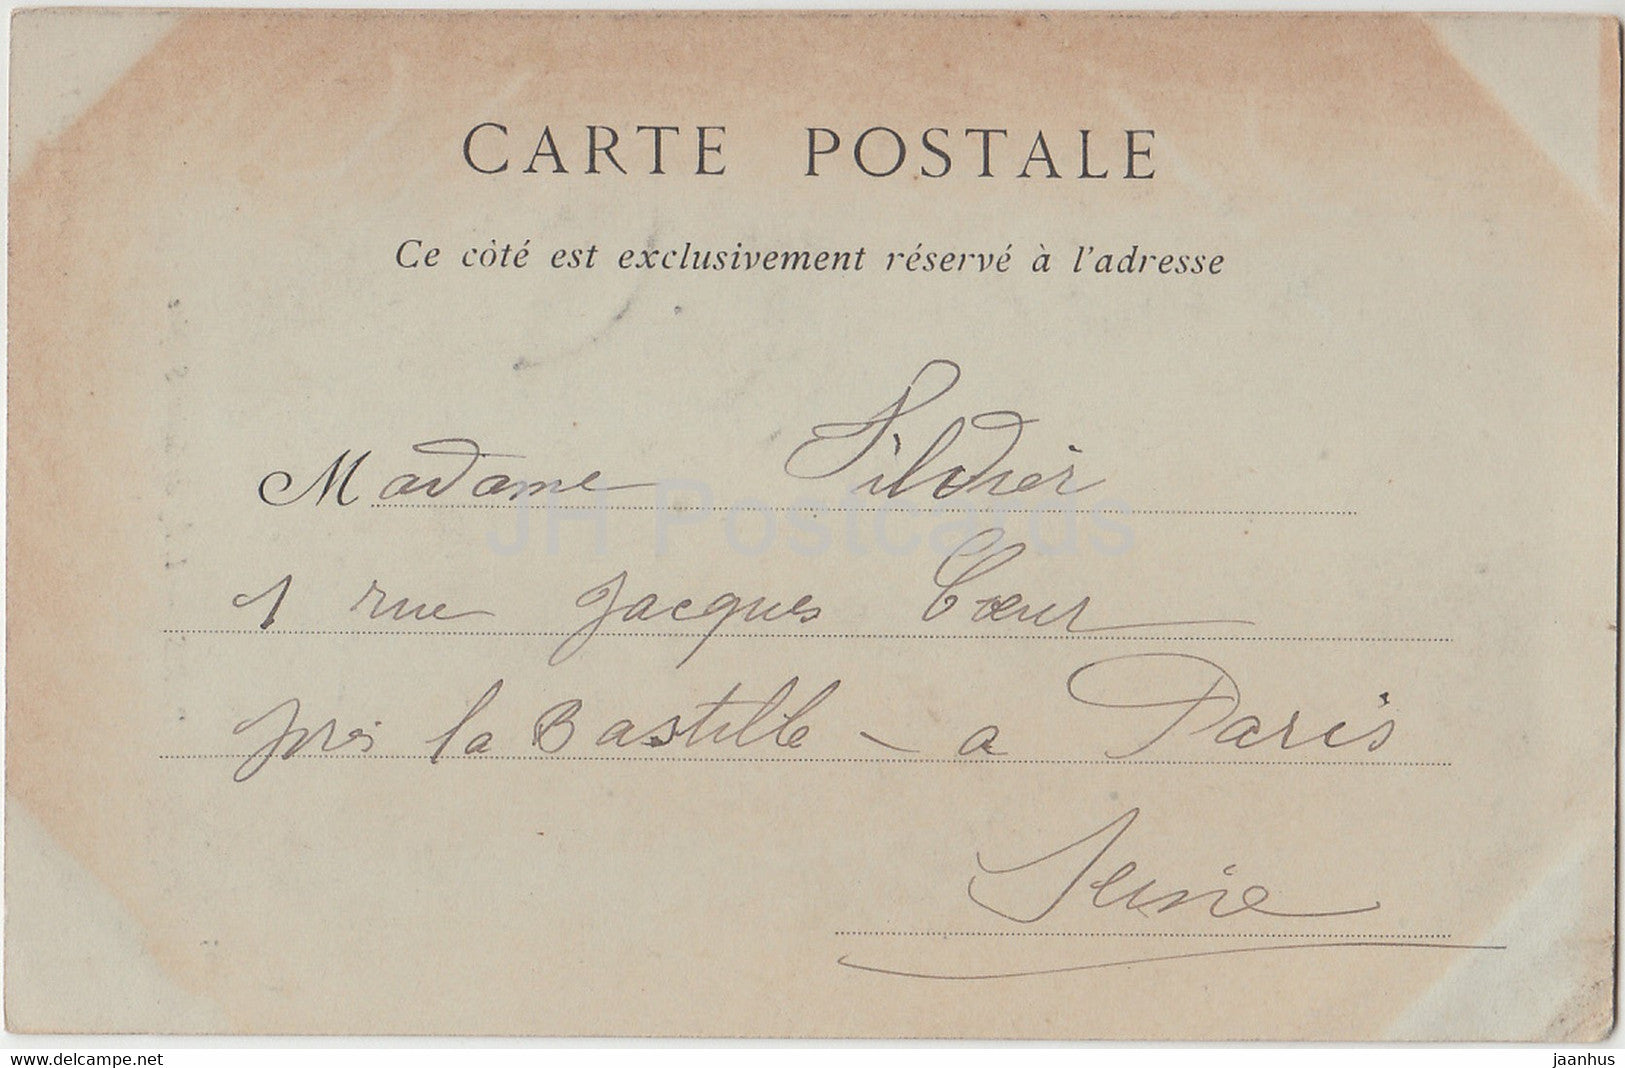 CARTE POSTALE
Ce côté est exclusivement réservé à l'adresse
Madame
1 rue Jacques Cœur
près la Bastille - a Paris
Seine
JH Postcards
www.delcampe.net
jaanhus